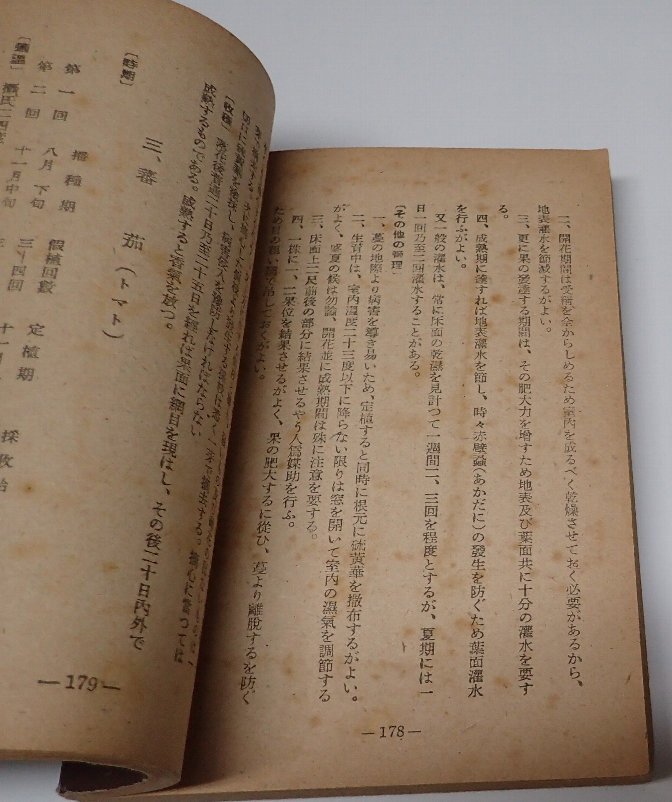 二、開花期間は受精を全からしめるため室內を成るべく乾燥させておく必要があるから、
地表灌水を節減するがよい。
三、更に果の發達する期間は、その肥大力を增すため地表及び葉面共に十分の灌水を要す
る。
四、成熟期に達すれば地表灌水を節し、時々赤壁蝨(あかだに)の發生を防ぐため葉面灌水
を行ふがよい。
又一般の灌水は、常に床面の乾濕を見計つて一週間二、三回を程度とするが、夏期には一
日一回乃至二回灌水することがある。
〔その他の管理〕
一、蔓の地際より病害を導き易いため、定植すると同時に根元に硫黃華を撒布するがよい。
二、生育中は、室內溫度二十三度以下に降らない限りは窓を開いて室內の濕氣を調節する
がよく、盛夏の候は勿論、開花並に成熟期間は殊に注意を要する。
三、床面上二尺前後の部分に結果させるやう人爲媒助を行ふ。
四、一株に一、二果位を結果させるがよく、果の肥大するに從ひ、蔓より離脫するを防ぐ
ため目の粗い網で吊しておくがよい。
—178—
〔收穫〕開花後普通二十日乃至二十五日を經れば果面に網目を現はし、その後二十日內外で
成熟するものである。成熟すると香氣を放つ。
三、蕃茄(トマト)
〔時期〕
播種期 假植回數 定植期 採收始
第一回 八月下旬 三—四回
第二回 十一月中旬
—179—